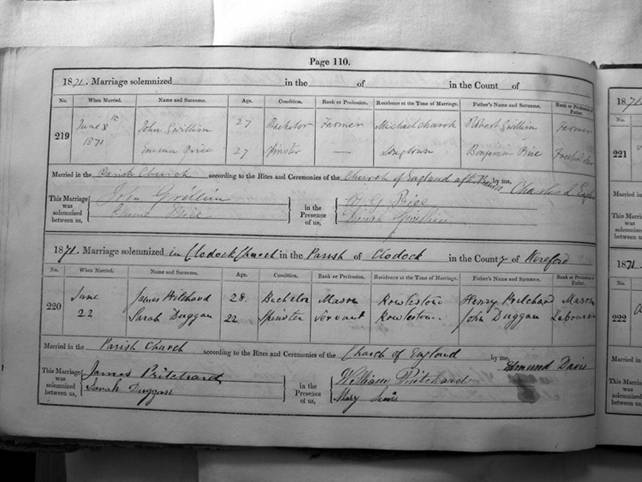 Page 110.
1871. Marriage solemnized in the of in the Count of
No. When Married. Name and Surname. Age. Condition. Rank or Profession. Residence at the Time of Marriage. Father's Name and Surname. Rank or Profession of Father.
219 June 8th 1871 John Gwillim 27 Bachelor Farmer Michaelchurch Robert Gwillim Farmer
Price 27 Spinster — Longtown Benjamin Price
Married in the Parish Church according to the Rites and Ceremonies of the Church of England by me,
This Marriage was solemnized between us, John Gwillim
Price
in the Presence of us, Price
Gwillim
1871. Marriage solemnized in Clodock Church in the Parish of Clodock in the County of Hereford
No. When Married. Name and Surname. Age. Condition. Rank or Profession. Residence at the Time of Marriage. Father's Name and Surname. Rank or Profession of Father.
220 June 22 James Pritchard 28 Bachelor Mason Rowlestone Henry Pritchard Mason
Sarah Duggan 22 Spinster Servant Rowlestone John Duggan Labourer
Married in the Parish Church according to the Rites and Ceremonies of the Church of England by me, Edmund Davis
This Marriage was solemnized between us, James Pritchard
Sarah Duggan
in the Presence of us, William Pritchard
Mary Lewis
187
No.
221
1871.
No.
222